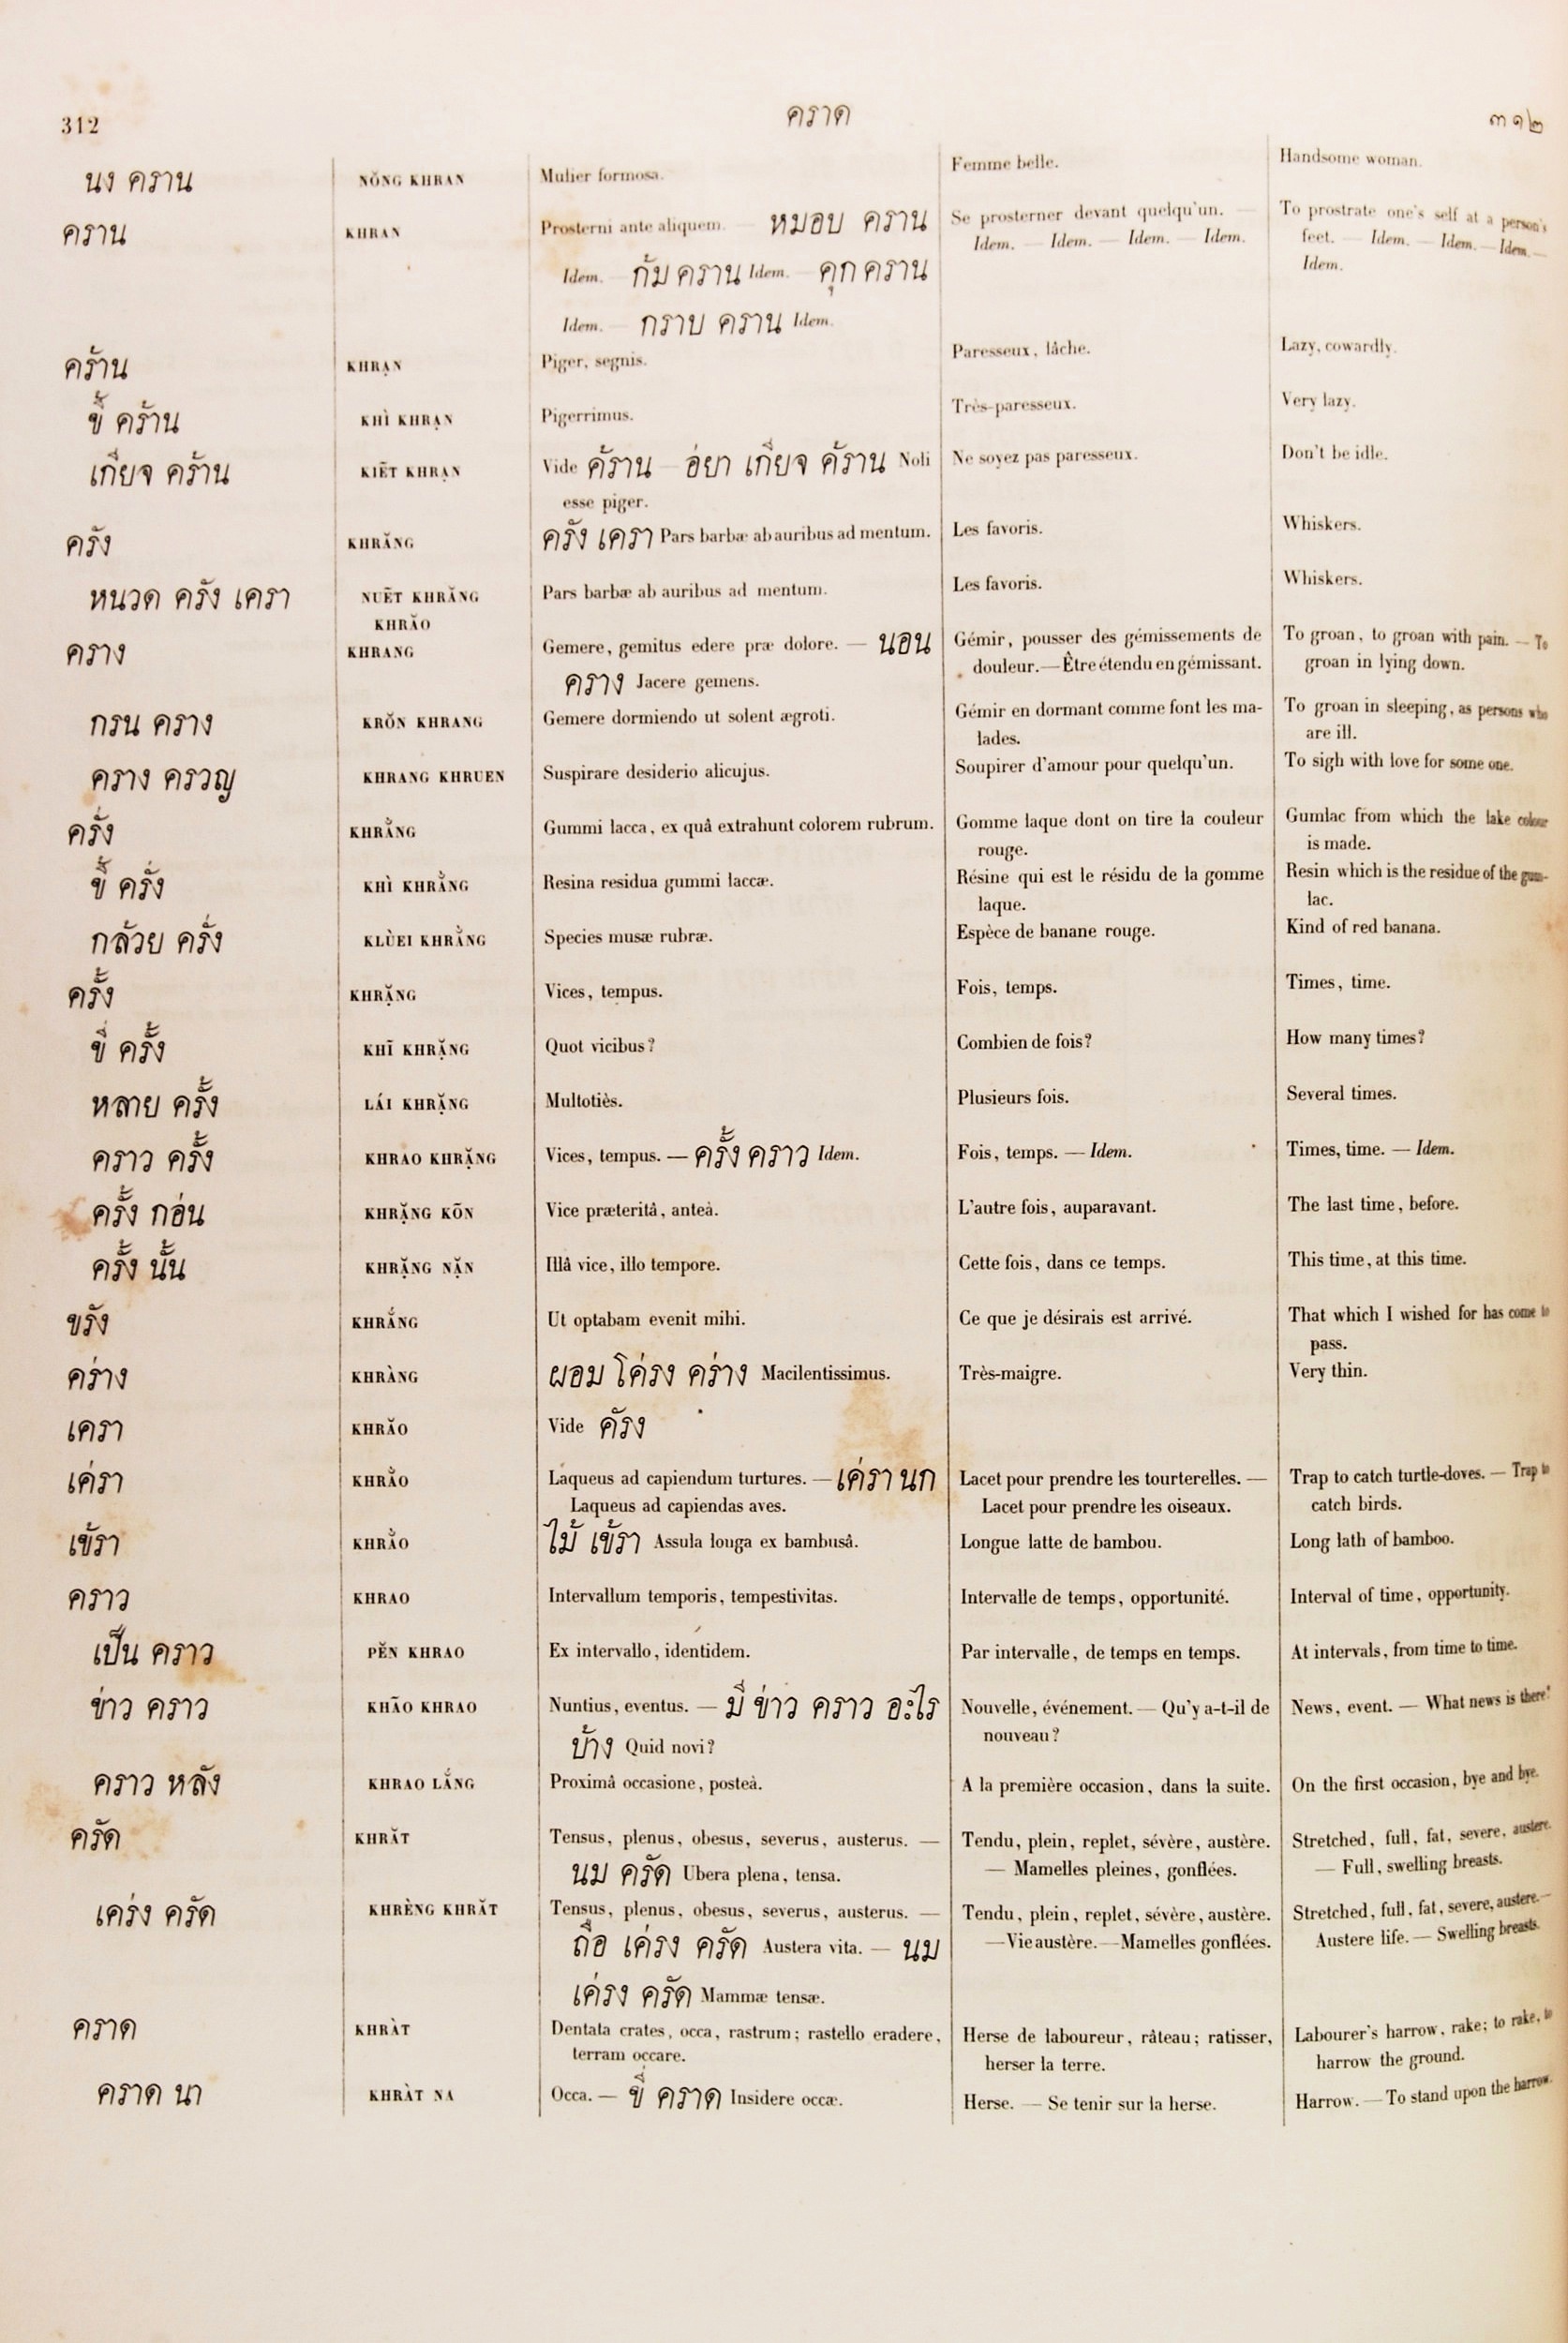 312
คราด
๓๑๒
นง คราน
NŎNG KHRAN
Mulier formosa.
Femme belle.
Handsome woman.
คราน
KHRAN
Prosterni ante aliquem. — หมอบ คราน
Idem. — ก้ม คราน Idem. — คุก คราน
Idem. — กราบ คราน Idem.
Se prosterner devant quelqu'un. —
Idem. — Idem. — Idem. — Idem.
To prostrate one's self at a person's
feet. — Idem. — Idem. — Idem. —
Idem.
คร้าน
KHRẠN
Piger, segnis.
Paresseux, lâche.
Lazy, cowardly.
ขี้ คร้าน
KHÌ KHRẠN
Pigerrimus.
Très-paresseux.
Very lazy.
เกียจ คร้าน
KIĒT KHRẠN
Vide ค้ราน — อ่ยา เกียจ ค้ราน Noli
esse piger.
Ne soyez pas paresseux.
Don't be idle.
ครัง
KHRĂNG
ครัง เครา Pars barbæ ab auribus ad mentum.
Les favoris.
Whiskers.
หนวด ครัง เครา
NUĒT KHRĂNG
KHRĂO
Pars barbæ ab auribus ad mentum.
Les favoris.
Whiskers.
คราง
KHRANG
Gemere, gemitus edere præ dolore. — นอน
คราง Jacere gemens.
Gémir, pousser des gémissements de
douleur. — Être étendu en gémissant.
To groan, to groan with pain. — To
groan in lying down.
กรน คราง
KRŎN KHRANG
Gemere dormiendo ut solent ægroti.
Gémir en dormant comme font les ma-
lades.
To groan in sleeping, as persons who
are ill.
คราง ครวญ
KHRANG KHRUEN
Suspirare desiderio alicujus.
Soupirer d'amour pour quelqu'un.
To sigh with love for some one.
ครั่ง
KHRẰNG
Gummi lacca, ex quâ extrahunt colorem rubrum.
Gomme laque dont on tire la couleur
rouge.
Gumlac from which the lake colour
is made.
ขี้ ครั่ง
KHÌ KHRẰNG
Resina residua gummi laccæ.
Résine qui est le résidu de la gomme
laque.
Resin which is the residue of the gum-
lac.
กล้วย ครั่ง
KLÙEI KHRẰNG
Species musæ rubræ.
Espèce de banane rouge.
Kind of red banana.
ครั้ง
KHRẶNG
Vices, tempus.
Fois, temps.
Times, time.
ขี่ ครั้ง
KHĪ KHRẶNG
Quot vicibus?
Combien de fois?
How many times?
หลาย ครั้ง
LÁI KHRẶNG
Multotiès.
Plusieurs fois.
Several times.
คราว ครั้ง
KHRAO KHRẶNG
Vices, tempus. — ครั้ง คราว Idem.
Fois, temps. — Idem.
Times, time. — Idem.
ครั้ง กอ่น
KHRẶNG KŌN
Vice præteritâ, anteà.
L'autre fois, auparavant.
The last time, before.
ครั้ง นั้น
KHRẶNG NẶN
Illâ vice, illo tempore.
Cette fois, dans ce temps.
This time, at this time.
ขรัง
KHRẮNG
Ut optabam evenit mihi.
Ce que je désirais est arrivé.
That which I wished for has come to
pass.
คร่าง
KHRÀNG
ผอม โค่รง คร่าง Macilentissimus.
Très-maigre.
Very thin.
เครา
KHRĂO
Vide คัรง
เค่รา
KHRẰO
Laqueus ad capiendum turtures. — เค่รา นก
Laqueus ad capiendas aves.
Lacet pour prendre les tourterelles. —
Lacet pour prendre les oiseaux.
Trap to catch turtle-doves. — Trap to
catch birds.
เข้รา
KHRẰO
ไม้ เข้รา Assula longa ex bambusâ.
Longue latte de bambou.
Long lath of bamboo.
คราว
KHRAO
Intervallum temporis, tempestivitas.
Intervalle de temps, opportunité.
Interval of time, opportunity.
เป็น คราว
PĔN KHRAO
Ex intervallo, identidem.
Par intervalle, de temps en temps.
At intervals, from time to time.
ข่าว คราว
KHĀO KHRAO
Nuntius, eventus. — มี ข่าว คราว อะไร
บ้าง Quid novi?
Nouvelle, événement. — Qu'y a-t-il de
nouveau?
News, event. — What news is there?
คราว หลัง
KHRAO LẮNG
Proximâ occasione, posteà.
A la première occasion, dans la suite.
On the first occasion, bye and bye.
ครัด
KHRĂT
Tensus, plenus, obesus, severus, austerus. —
นม ครัด Ubera plena, tensa.
Tendu, plein, replet, sévère, austère.
— Mamelles pleines, gonflées.
Stretched, full, fat, severe, austere.
— Full, swelling breasts.
เคร่ง ครัด
KHRÈNG KHRĂT
Tensus, plenus, obesus, severus, austerus. —
ถือ เค่รง ครัด Austera vita. — นม
เค่รง ครัด Mammæ tensæ.
Tendu, plein, replet, sévère, austère.
— Vie austère. — Mamelles gonflées.
Stretched, full, fat, severe, austere. —
Austere life. — Swelling breasts.
คราด
KHRÀT
Dentata crates, occa, rastrum; rastello eradere,
terram occare.
Herse de laboureur, râteau; ratisser,
herser la terre.
Labourer's harrow, rake; to rake, to
harrow the ground.
คราด นา
KHRÀT NA
Occa. — ขี่ คราด Insidere occæ.
Herse. — Se tenir sur la herse.
Harrow. — To stand upon the harrow.